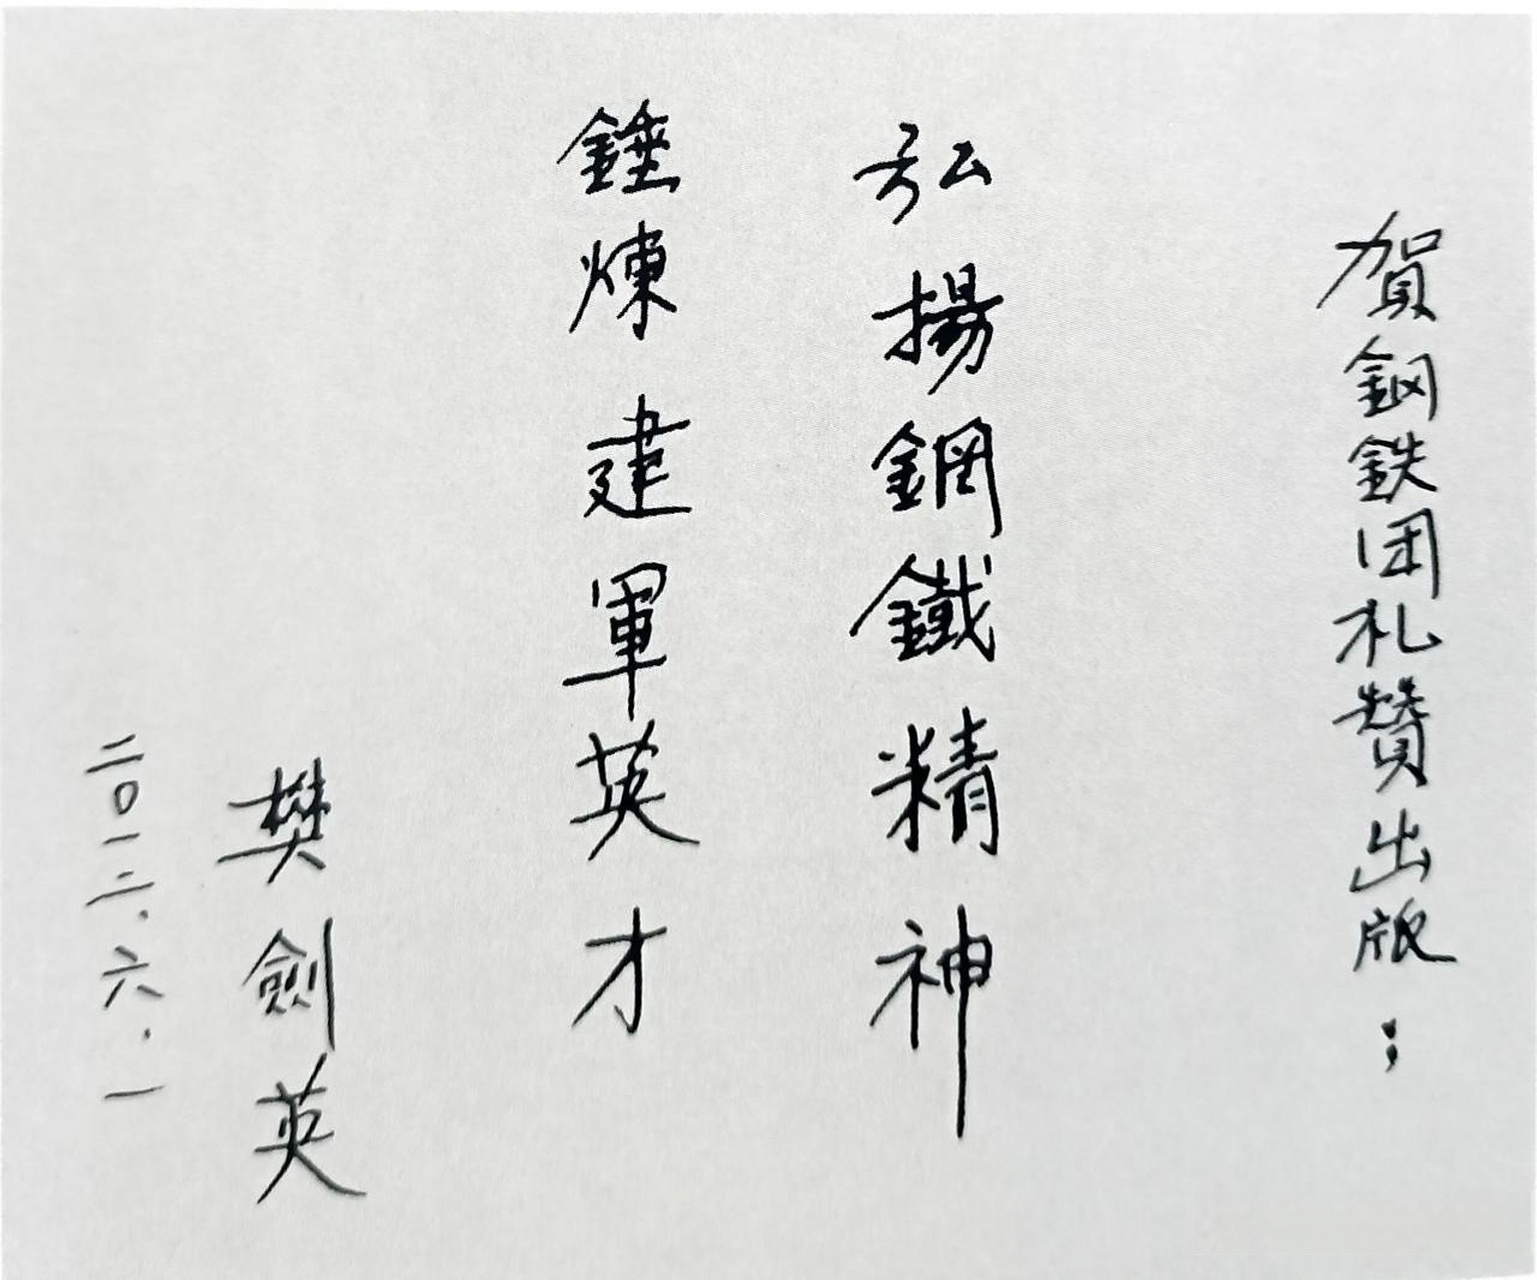 賀鋼鉄团札贊出版：
弘揚鋼鐵精神
錘煉建軍英才
樊劍英
二〇一二.六.一